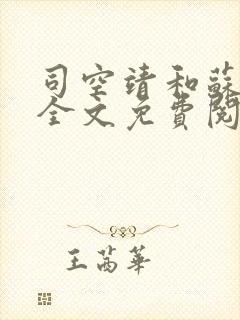 司空靖和蘇
全文免費閱
王芮華